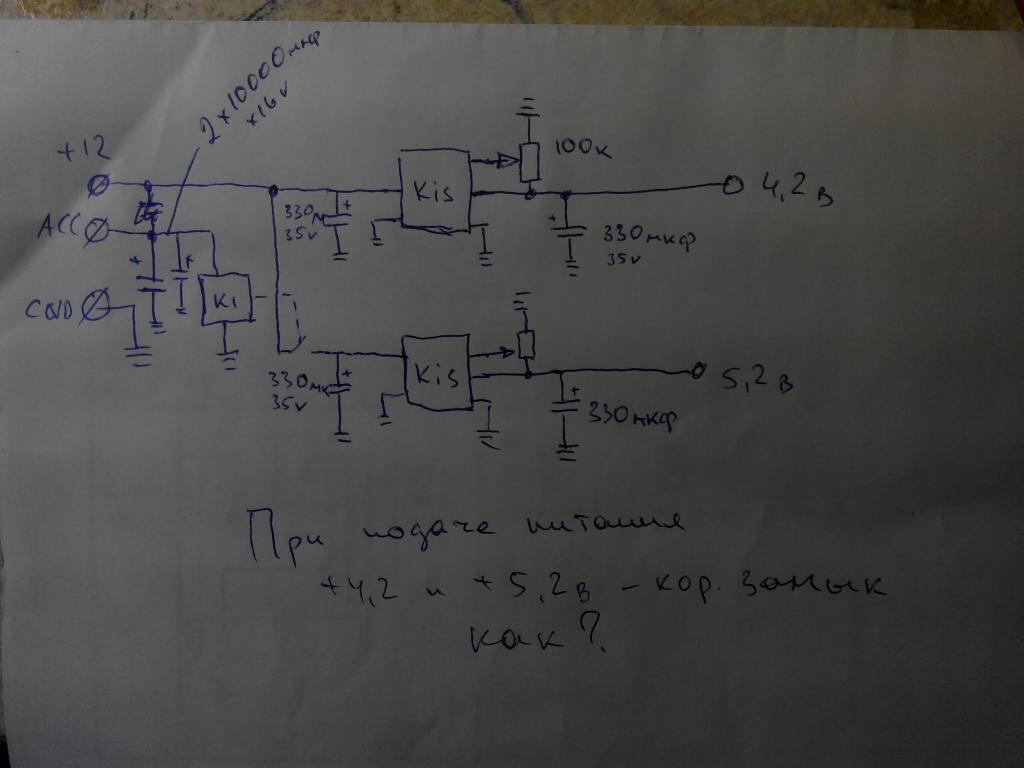 2×10000мкф
×16v
+12
ACC
GND
K1
330м
35v
Kis
100к
4,2в
330мкф
35v
330мк
35v
Kis
5,2в
330мкф
При подаче питания
+4,2 и +5,2в – кор. замык
как?